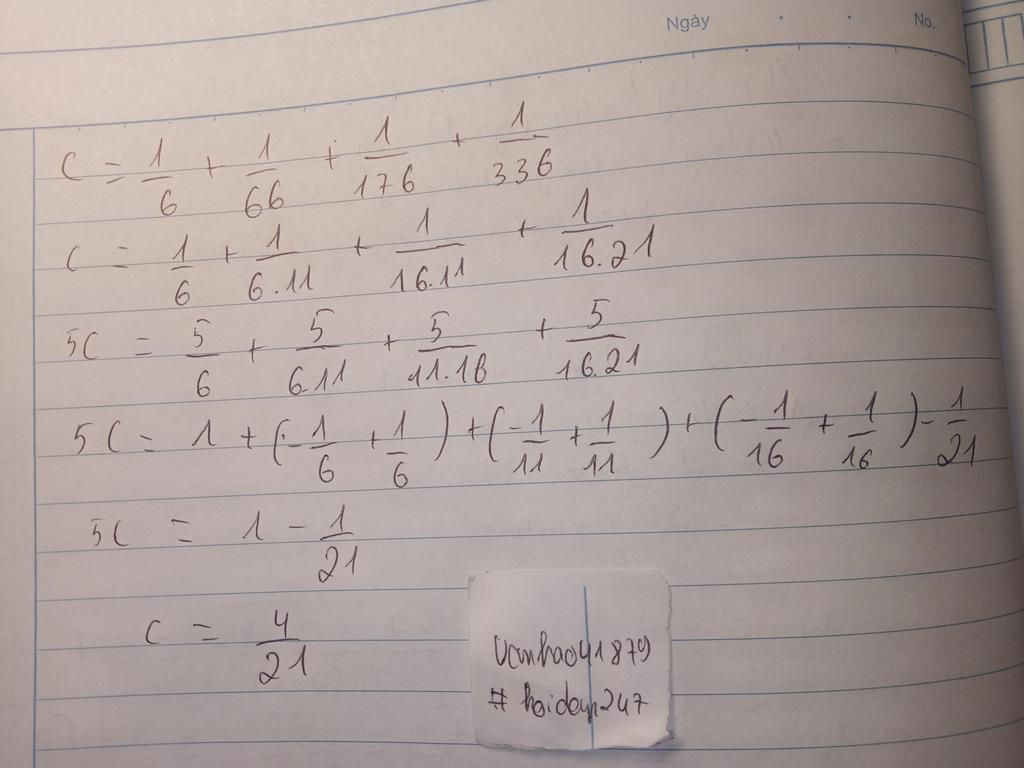 Ngày No.
C = 1/6 + 1/66 + 1/176 + 1/336
C = 1/6 + 1/6.11 + 1/16.11 + 1/16.21
5C = 5/6 + 5/6.11 + 5/11.16 + 5/16.21
5C = 1 + (-1/6 + 1/6) + (-1/11 + 1/11) + (-1/16 + 1/16) - 1/21
5C = 1 - 1/21
C = 4/21
Vanhao41879
# hoidap247